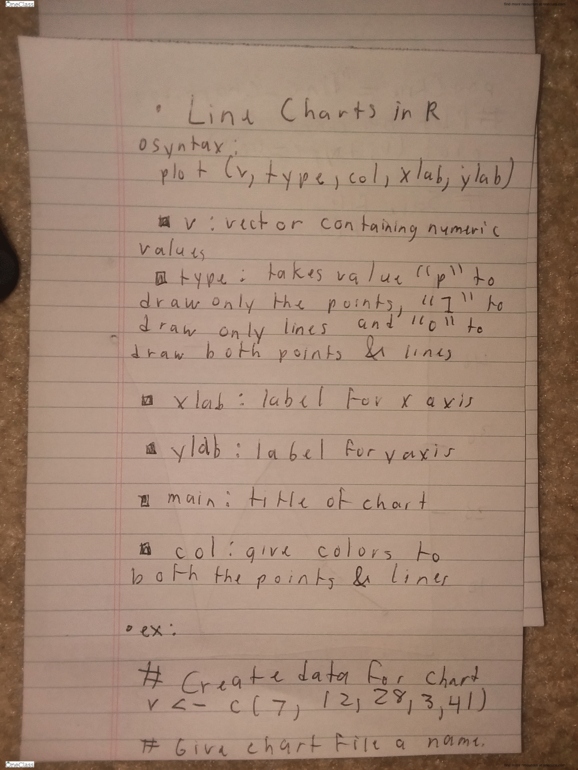 OneClass
• Line Charts in R
o syntax:
plot (v, type, col, xlab, ylab)
▪ v: vector containing numeric
values
▪ type: takes value "p" to
draw only the points, "I" to
draw only lines and "o" to
draw both points & lines
▪ xlab: label for x axis
▪ ylab: label for y axis
▪ main: title of chart
▪ col: give colors to
both the points & lines
• ex:
# Create data for chart
v <- c(7, 12, 28, 3, 41)
# Give chart file a name.
OneClass